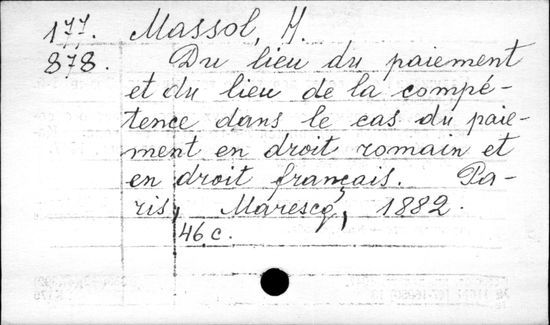 177. Massol, H.
878. Du lieu du paiement
et du lieu de la compé-
tence dans le cas du paie-
ment en droit romain et
en droit français. Pa-
ris, Marescq, 1882.
46 c.